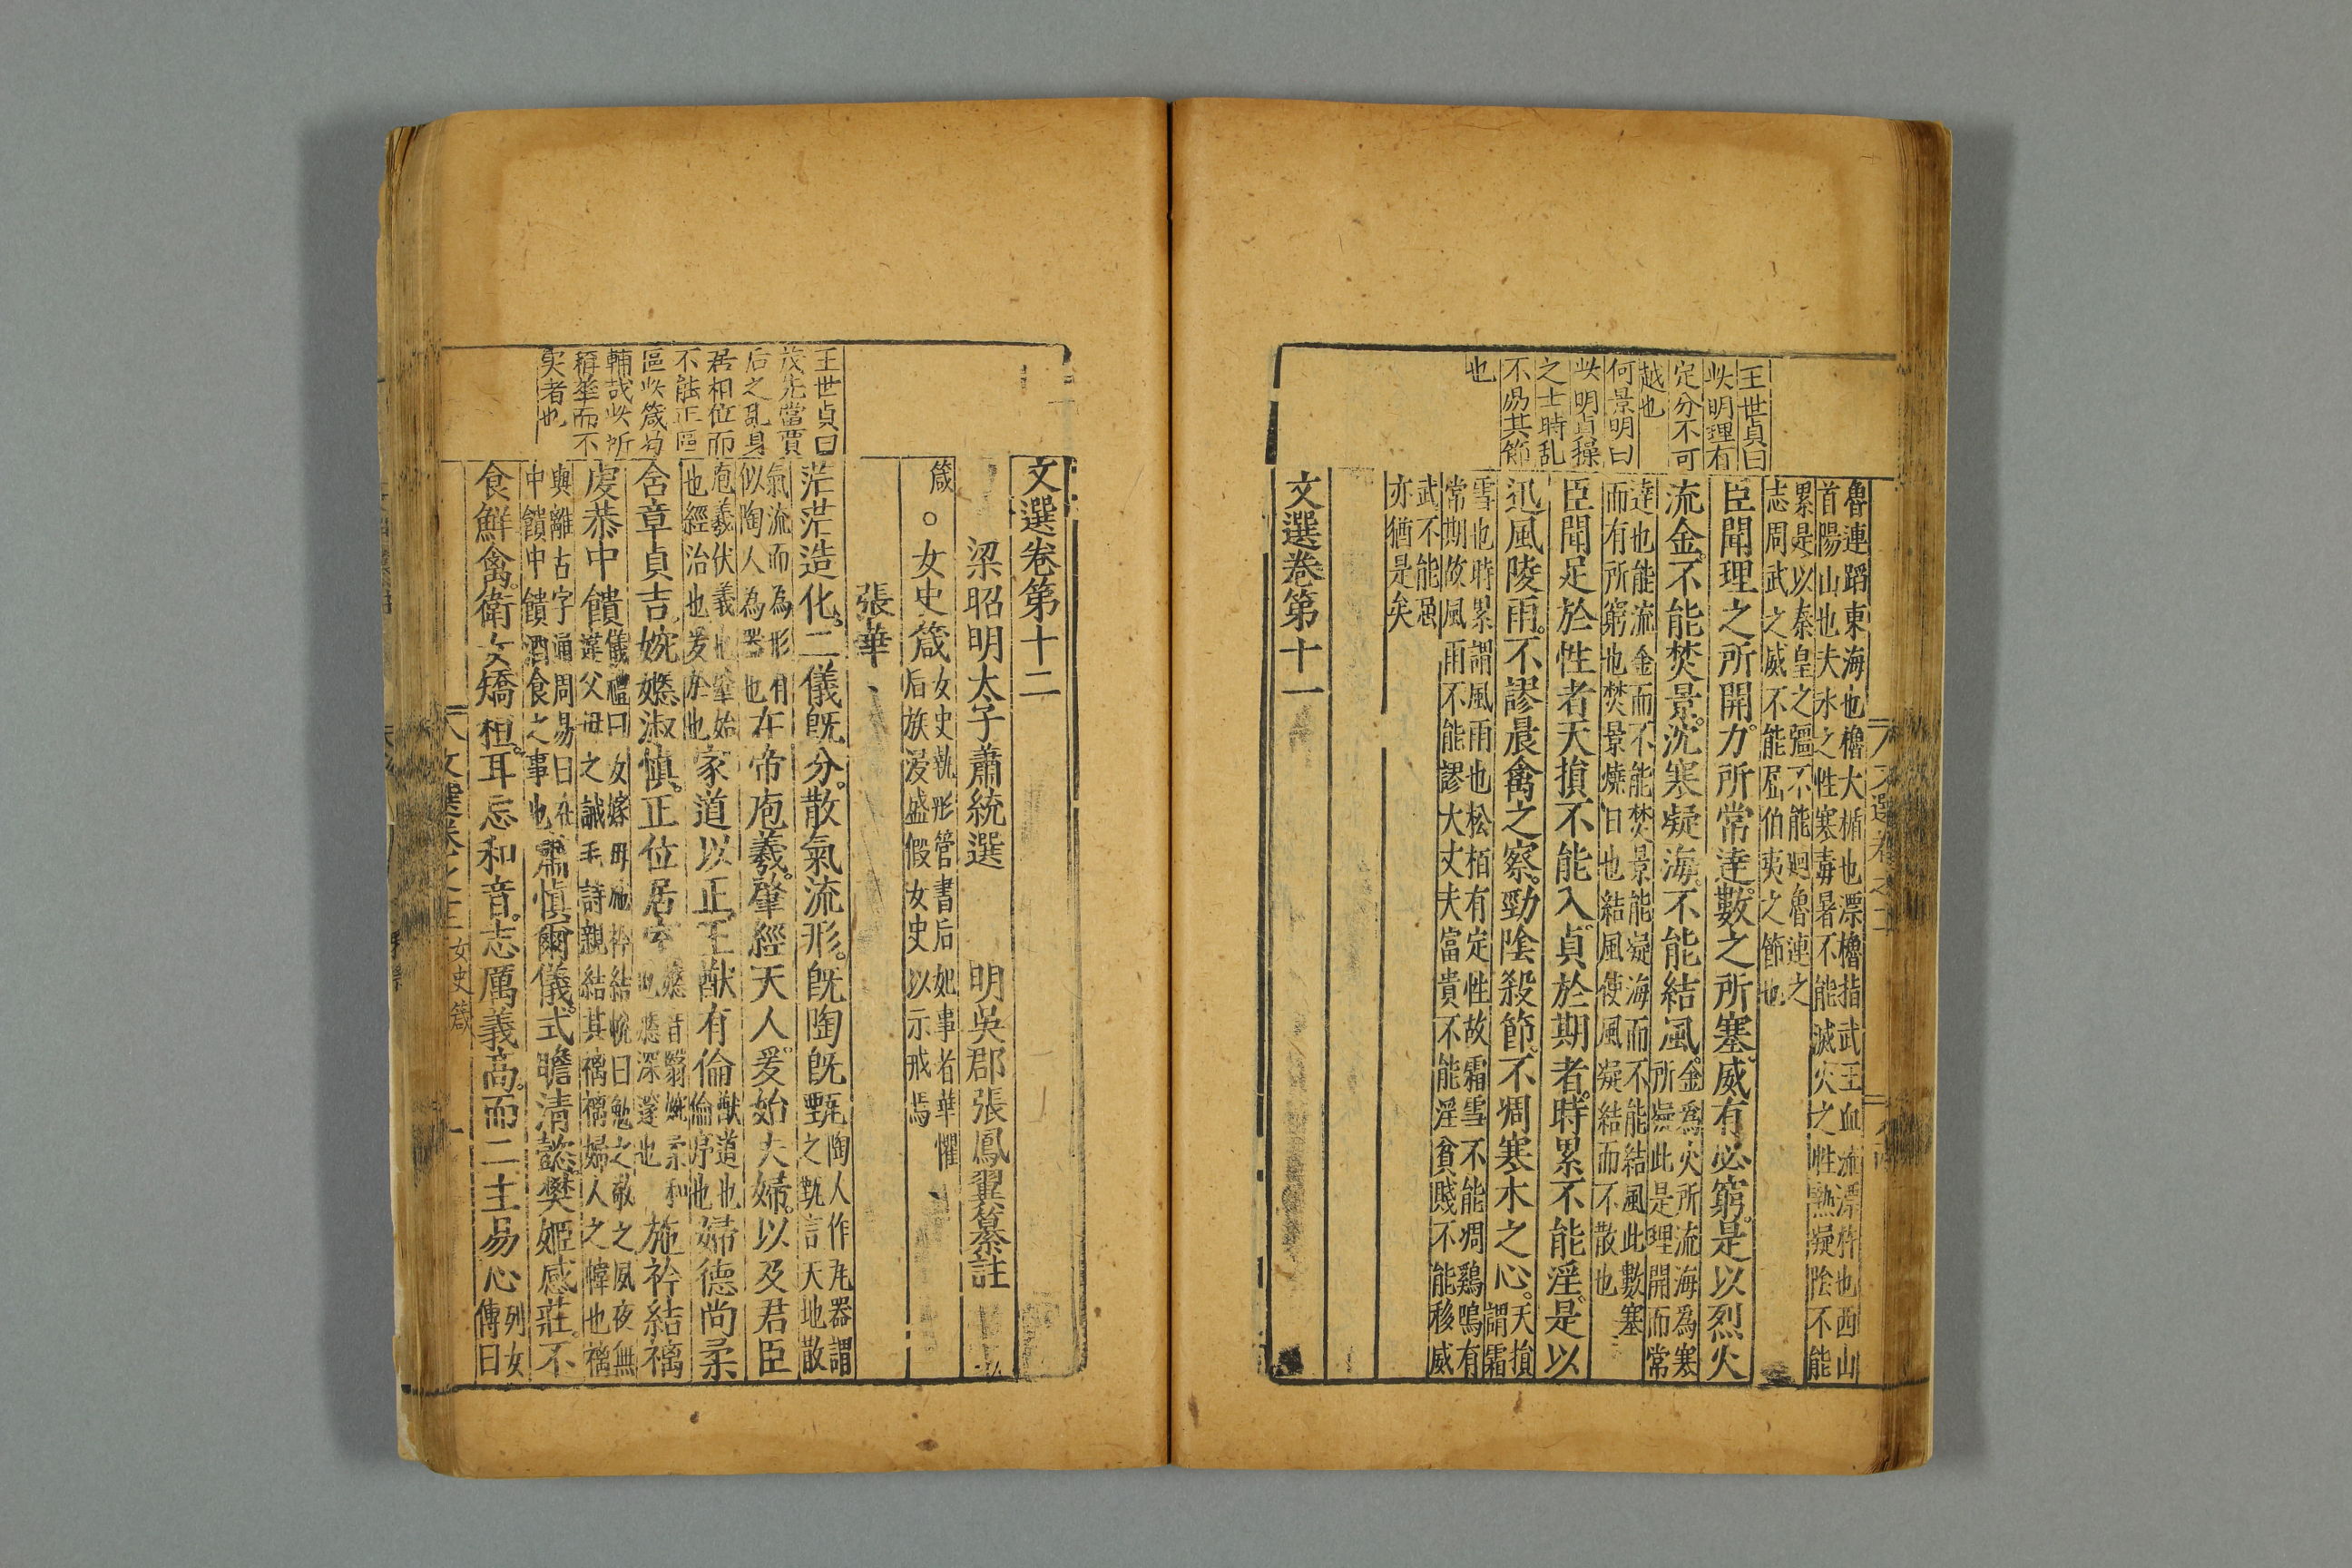 王世貞曰
此明理有
定分不可
越也
何景明曰
此明貞操
之士時乱
不易其節
也
魯連蹈東海也櫓大楯也漂櫓指武王血流漂杵也西山
首陽山也夫水之性寒毒暑不能滅火之性熱凝陰不能
累是以秦皇之彊不能廻魯連之
志周武之威不能屈伯夷之節也
臣聞理之所開力所常達數之所塞威有必窮是以烈火
流金不能焚景沉寒凝海不能結風
金為火所流海為寒
所凝此是理開而常
達也能流金而不能焚景能凝海而不能結風此數塞
而有所窮也焚景燒日也結風使風凝結而不散也
臣聞足於性者天損不能入貞於期者時累不能淫是以
迅風陵雨不謬晨禽之察勁陰殺節不凋寒木之心
天損
謂霜
雪也時累謂風雨也松栢有定性故霜雪不能凋鷄鳴有
常期故風雨不能謬大丈夫富貴不能淫貧賤不能移威
武不能屈
亦猶是矣
文選卷第十一
文選卷第十二
梁昭明太子蕭統選 明吳郡張鳳翼纂註
箴
○女史箴
女史執彤管書后妃事者華懼
后族寖盛假女史以示戒焉
張華
王世貞曰
茂先當賈
后之亂身
居相位而
不能正區
區此箴曷
輔哉此所
稱華而不
實者也
茫茫造化二儀既分散氣流形既陶既甄
陶人作瓦器謂
之甄言天地散
氣流而為形有
似陶人為器也
在帝庖羲肇經天人爰始夫婦以及君臣
庖羲伏羲也肇始
也經治也爰於也
家道以正王猷有倫
猷道也
倫序也
婦德尚柔
含章貞吉婉嫕淑慎正位居室
嫕音翳婉柔和
也嫕深邃也
施衿結褵
虔恭中饋
儀禮曰女嫁母施衿結帨曰勉之敬之夙夜無
違父母之誡毛詩親結其褵褵婦人之幃也褵
與離古字通周易曰在
中饋中饋酒食之事也
肅慎爾儀式瞻清懿樊姬感莊不
食鮮禽衛女矯桓耳忘和音志厲義高而二主易心
列女
傳曰
文選卷之十二
女史箴